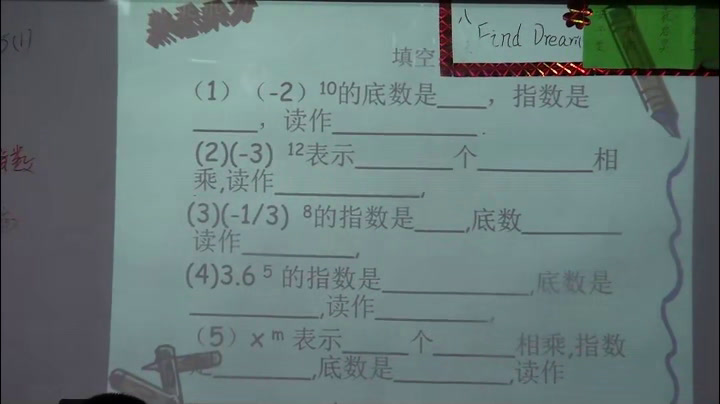 5(1)
Find Dream
填空
（1）（-2）10的底数是____，指数是
_____，读作___________.
(2)(-3) 12表示_______个_________相
乘,读作___________,
(3)(-1/3) 8的指数是____,底数________
读作_________,
(4)3.6 5 的指数是___________,底数是
__________,读作_________,
（5）x m 表示_____个______相乘,指数
是________,底数是_________,读作